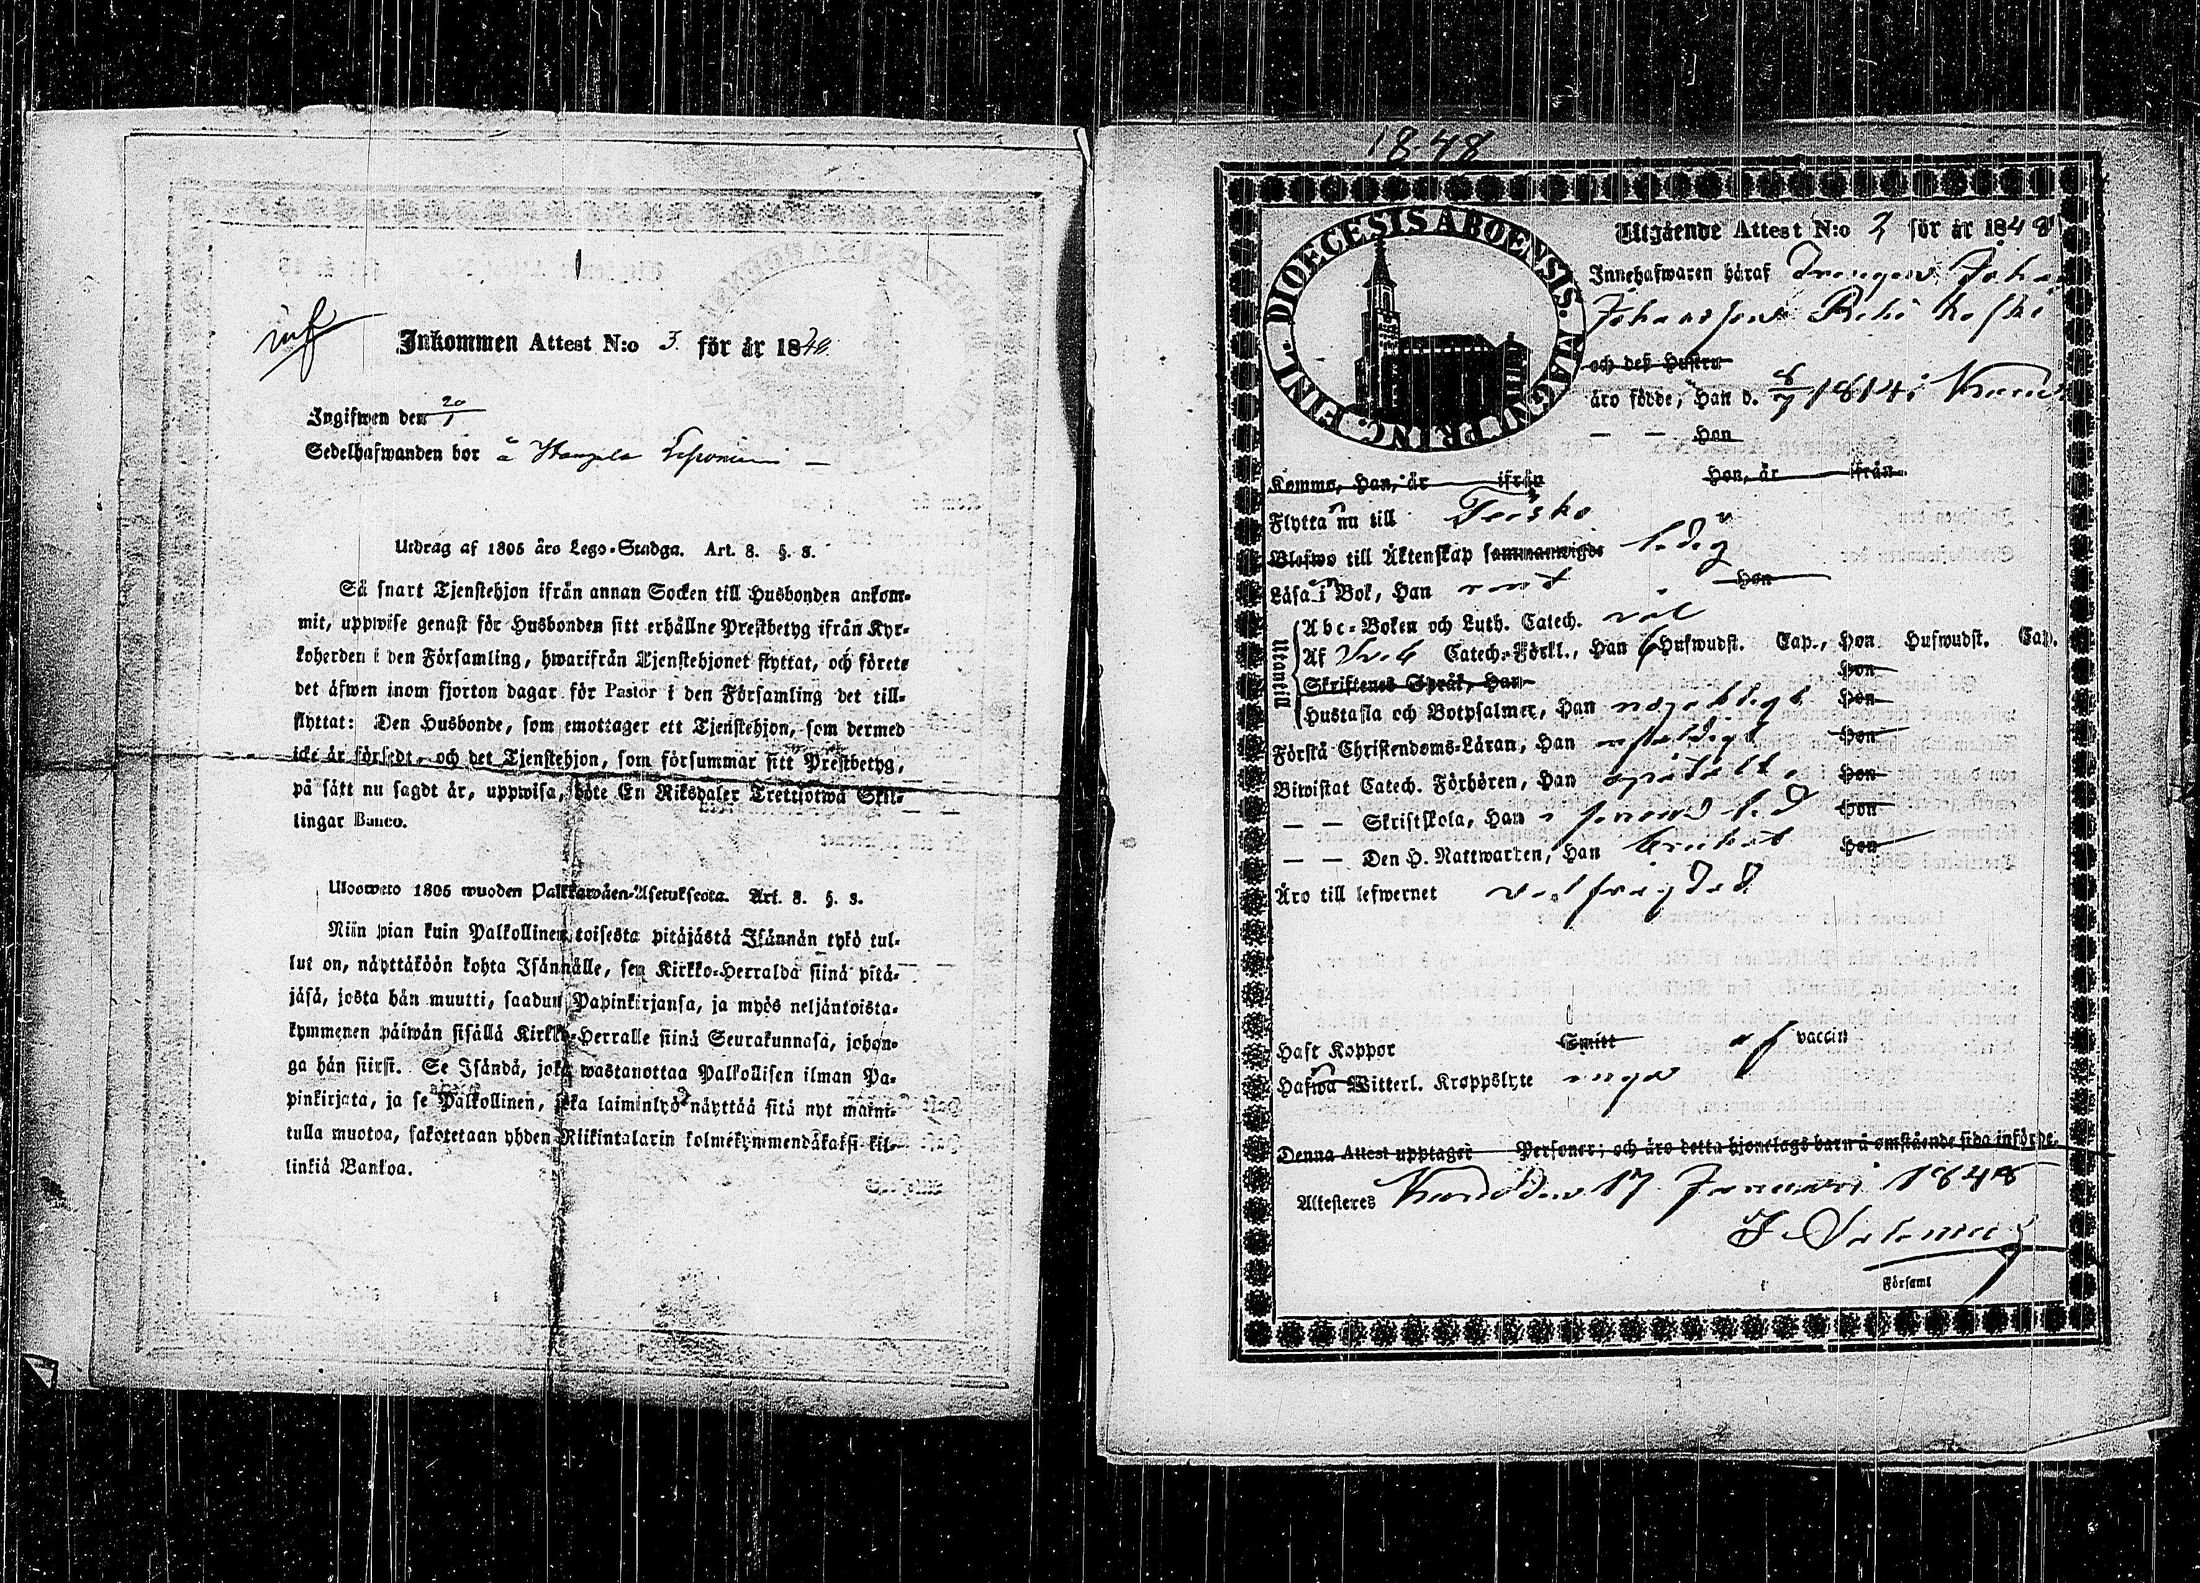 Inkommen Attest N:o 3. för år 1848.
Ingifwen den 20/1
Sedelhafwanden bor å
Utdrag af 1805 års Lego-Stadga. Art. 8. §. 8.
Så snart Tjenstehjon ifrån annan Socken till Husbonden ankom-
mit, uppwise genast för Husbonden sitt erhållne Prestbetyg ifrån Kyr-
koherden i den Församling, hwarifrån Tjenstehjonet flyttat, och förete
det äfwen inom fjorton dagar för Pastor i den Församling det till-
flyttat: Den Husbonde, som emottager ett Tjenstehjon, som dermed
icke är försedt, och det Tjenstehjon, som försummar sitt Prestbetyg,
på sätt nu sagdt är, uppwisa, böte En Riksdaler Trettiotwå Skil-
lingar Banco.
Ulosweto 1805 wuoden Palkkawäen-Asetuksesta. Art. 8. §. 8.
Niin pian kuin Palkollinen toisesta pitäjästä Isännän tykö tul-
lut on, näyttäköön kohta Isännälle, sen Kirkko-Herralda siinä pitä-
jäsä, josta hän muutti, saadun Papinkirjansa, ja myös neljäntoista-
kymmenen päiwän sisällä Kirkko-Herralle siinä Seurakunnasa, johon-
ga hän siirsi. Se Isändä, joka wastanottaa Palkollisen ilman Pa-
pinkirjata, ja se Palkollinen, joka laiminlyö näyttää sitä nyt maini-
tulla muotoa, sakotetaan yhden Riikintalarin kolmekymmendäkaksi kil-
linkiä Bankoa.
1848
DIOECESIS ABOENSIS. MAGNI PRINC. FINL.
Utgående Attest N:o 3 för år 1848
Innehafwaren häraf Drengen Joha
Johansson
och deß Hustru
äro födde, Han d. 1814 i
— — Hon
Komne, Han, år ifrån Hon, år ifrån
Flytta nu till Teisko
Blefwo till Äktenskap sammanwigde ledig
Läsa i Bok, Han rent Hon
Utantill
Abc-Boken och Luth. Catech. väl
Af Sveb Catech. Förkl., Han 6 Hufwudst. Cap., Hon Hufwudst. Cap.
Skriftenes Språk, Han Hon
Hustafla och Botpsalmer, Han nöjaktigt Hon
Förstå Christendoms-Läran, Han Hon
Biwistat Catech. Förhören, Han Hon
— — Skriftskola, Han Hon
— — Den H. Nattwarden, Han brukat Hon
Äro till lefwernet välfrejdad
Haft Koppor Smitt af vaccin
Hafwa Witterl. Kroppslyte inga
Denna Attest upptager Personer; och äro detta hjonelags barn å omstående sida införde.
Attesteres den 17 Januari 1848
i Församl